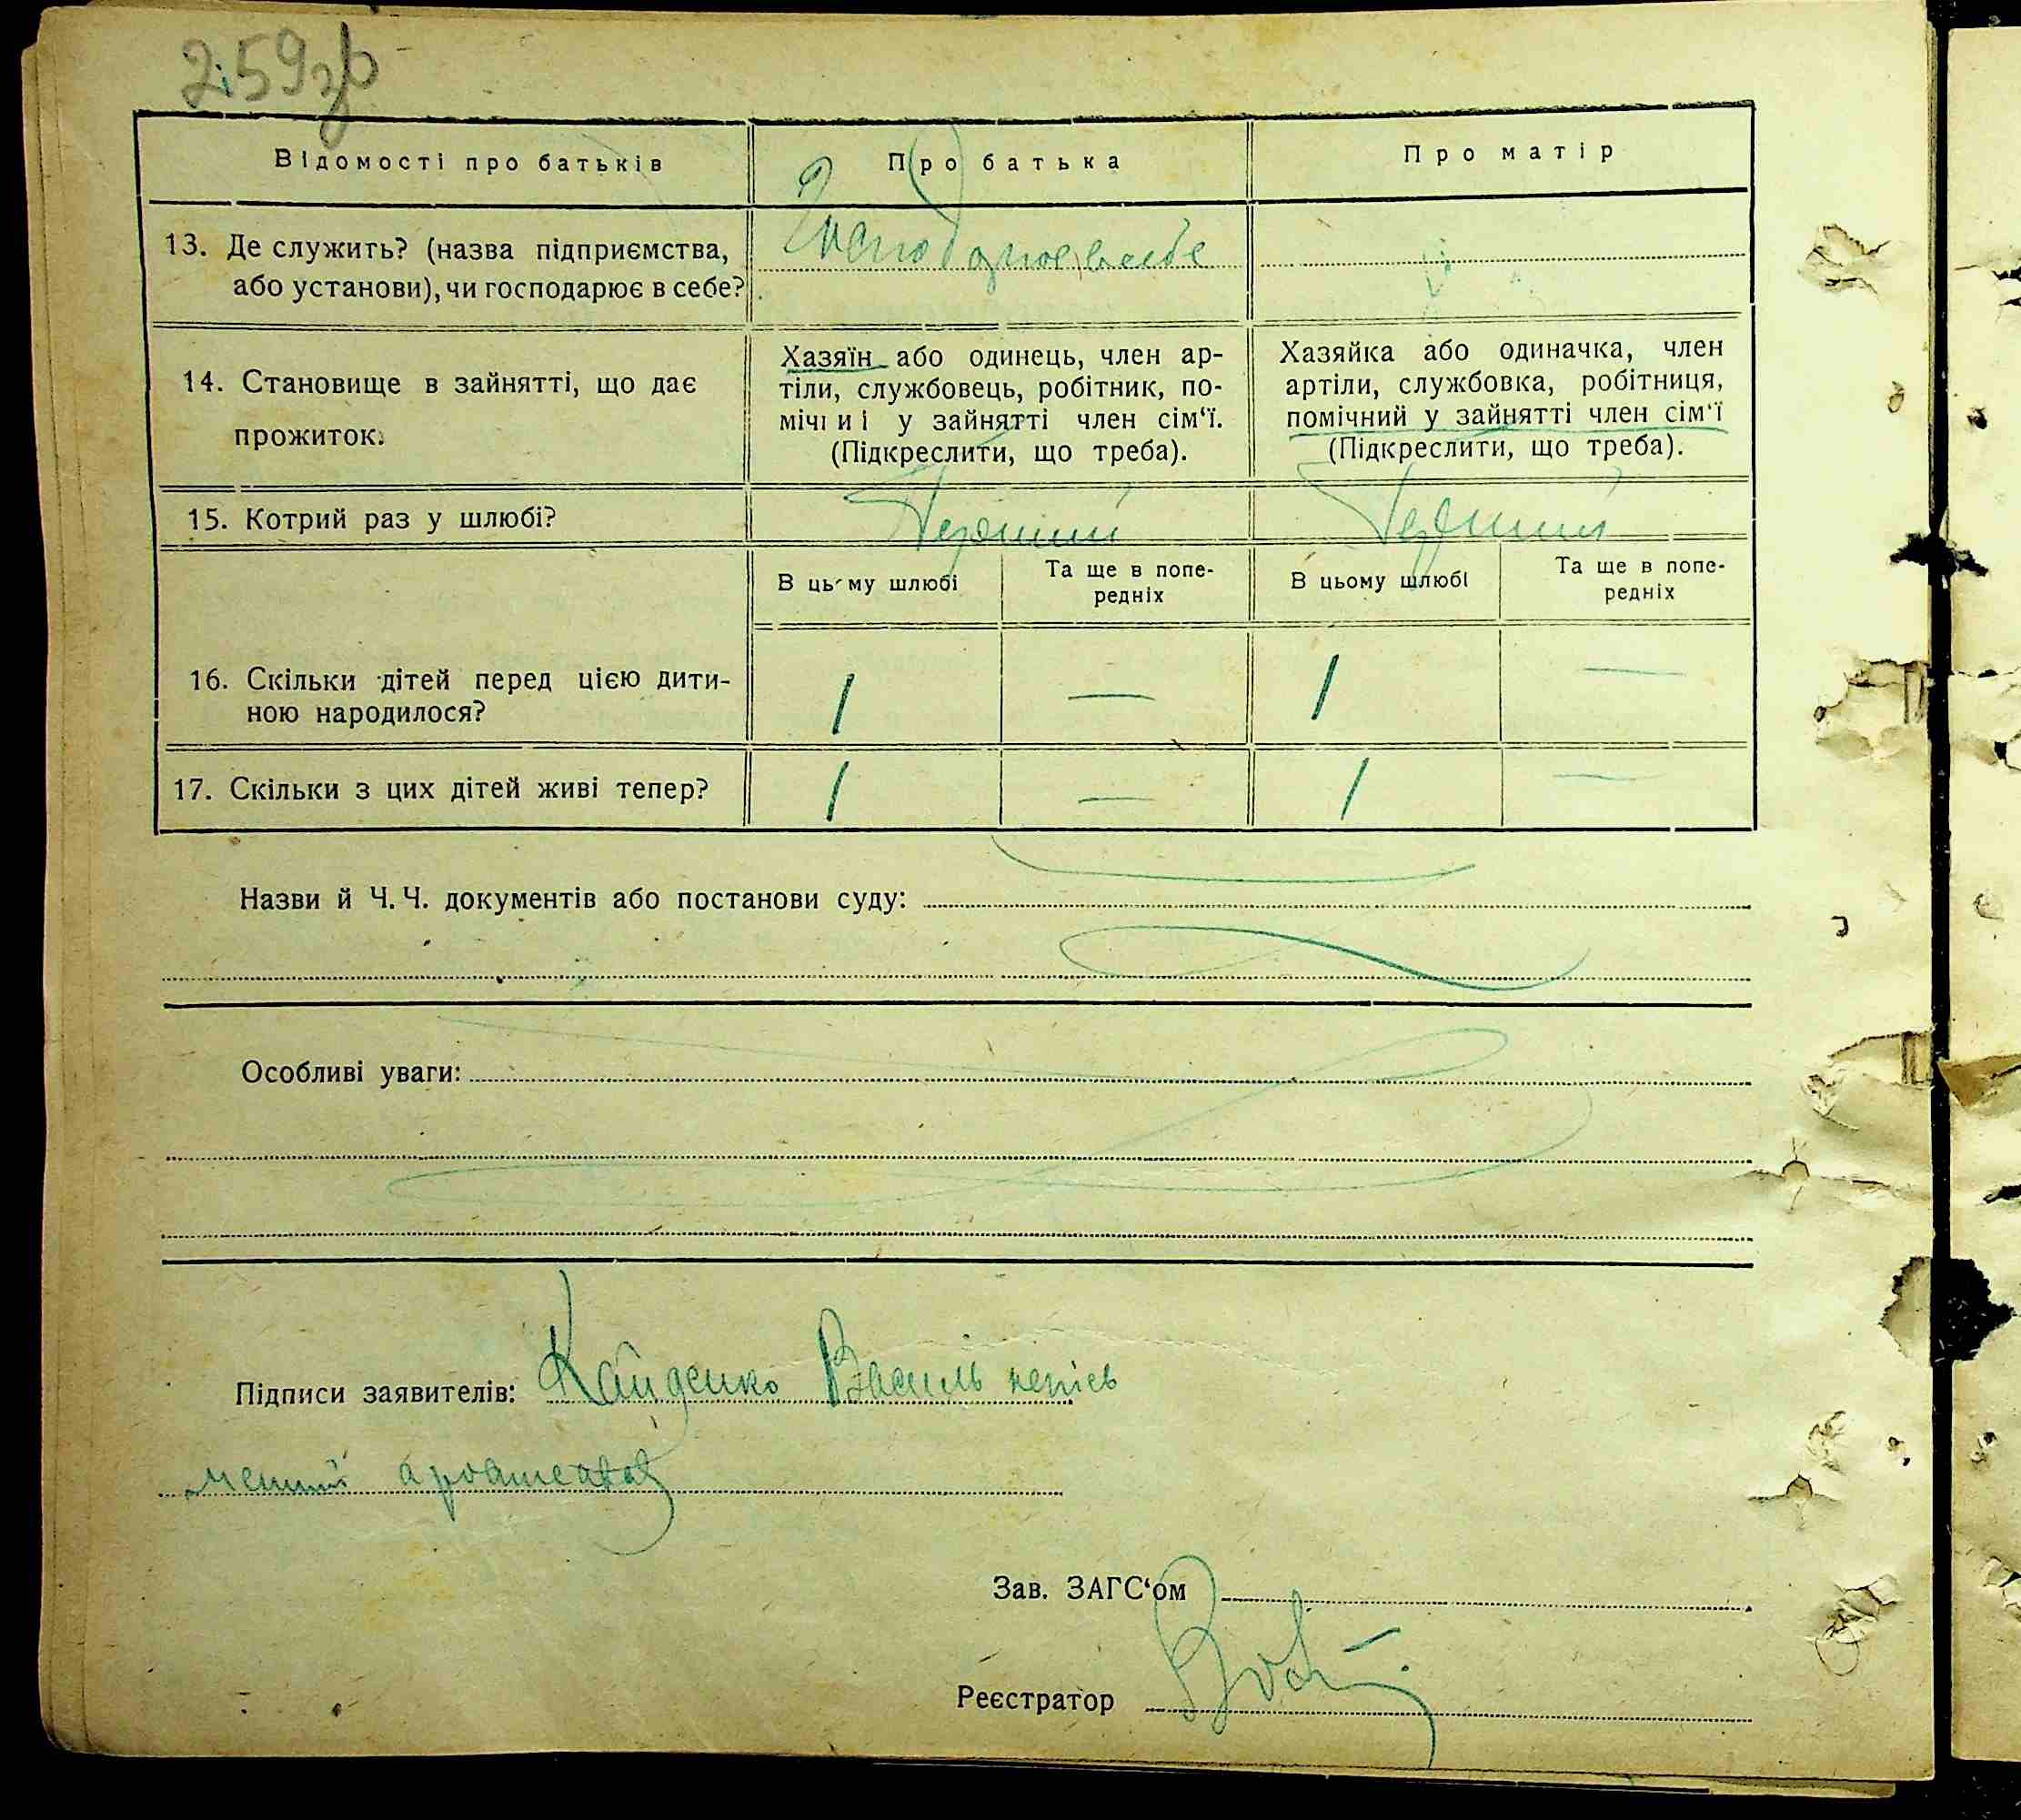 259зв
Відомості про батьків
Про батька
Про матір
13. Де служить? (назва підприємства,
або установи), чи господарює в себе?
Господарює в себе
14. Становище в зайнятті, що дає
прожиток.
Хазяїн або одинець, член ар-
тіли, службовець, робітник, по-
мічний у зайнятті член сім‘ї.
(Підкреслити, що треба).
Хазяйка або одиначка, член
артіли, службовка, робітниця,
помічний у зайнятті член сім‘ї
(Підкреслити, що треба).
15. Котрий раз у шлюбі?
Перший
Перший
В цьому шлюбі
Та ще в попе-
редніх
В цьому шлюбі
Та ще в попе-
редніх
16. Скільки дітей перед цією дити-
ною народилося?
1 — 1 —
17. Скільки з цих дітей живі тепер?
1 — 1 —
Назви й Ч. Ч. документів або постанови суду:
Особливі уваги:
Підписи заявителів: Кайденко Василь непись
менний
Зав. ЗАГС‘ом
Реєстратор